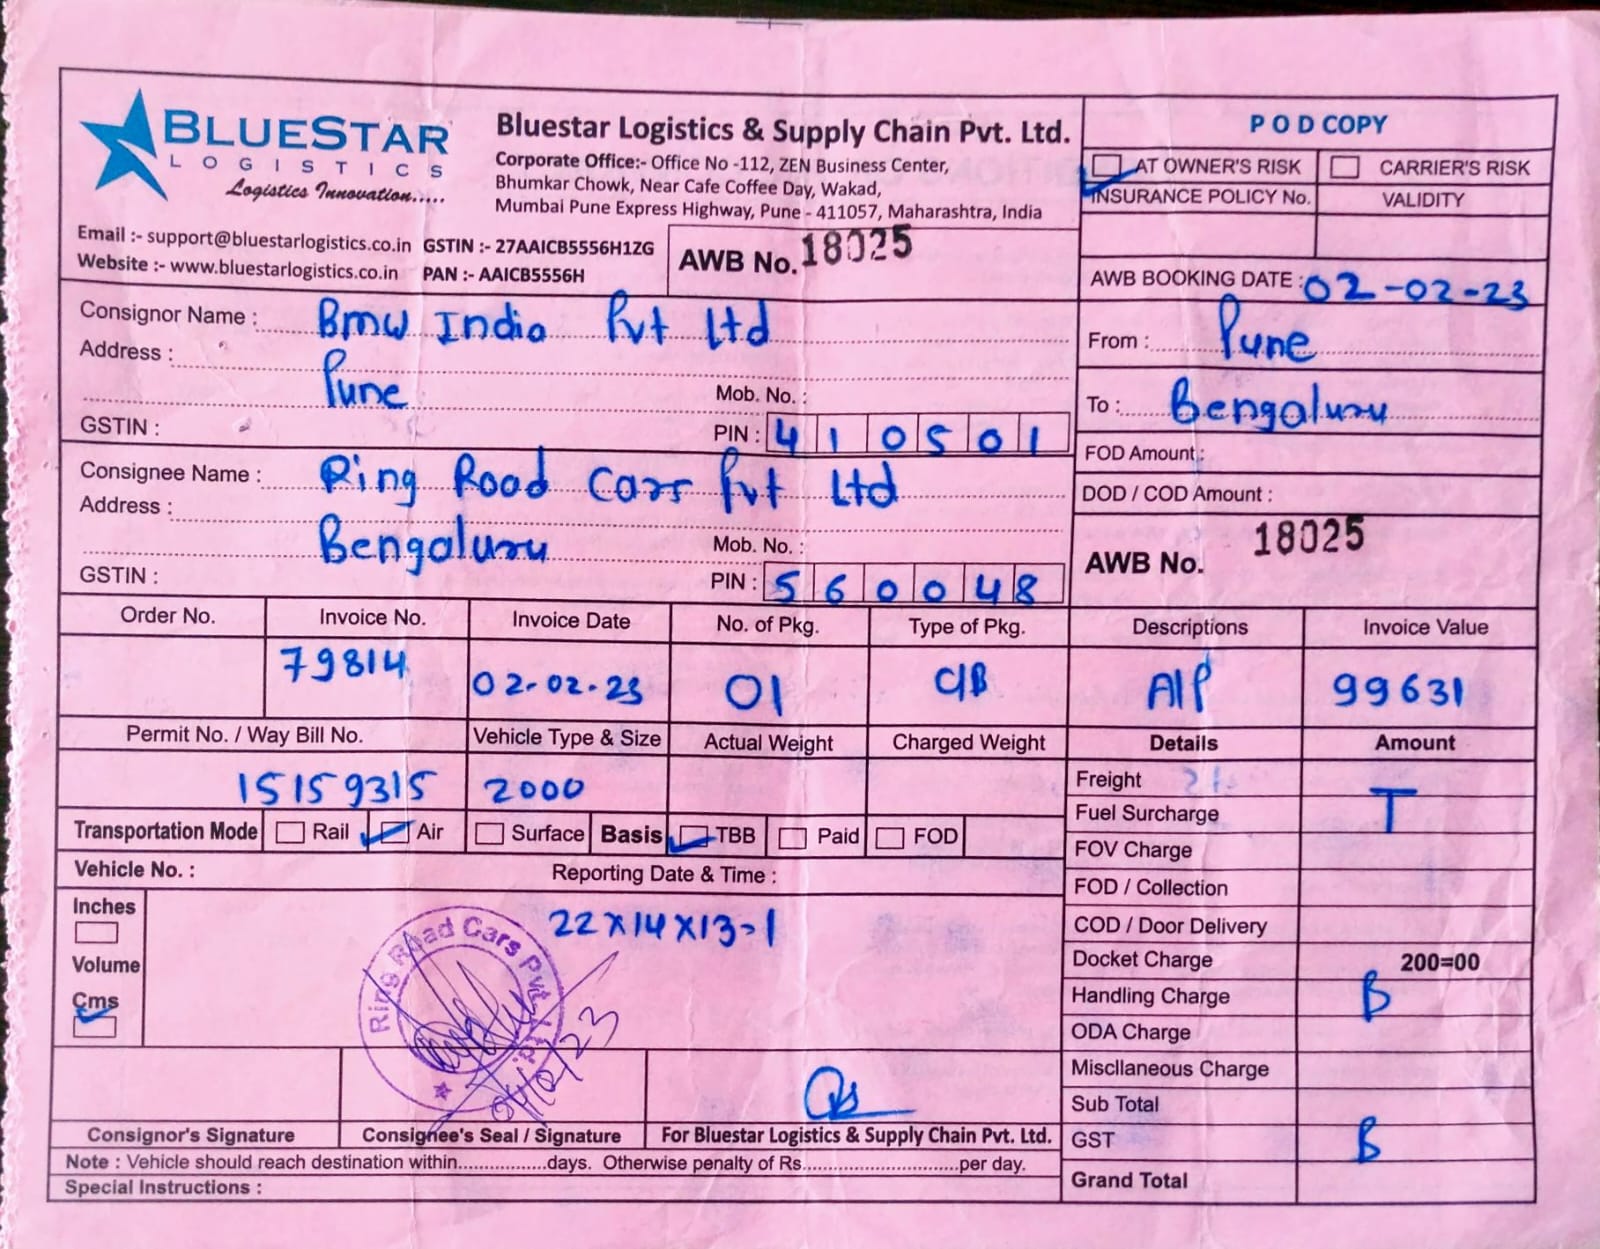 BLUESTAR
LOGISTICS
Logistics Innovation.....
Bluestar Logistics & Supply Chain Pvt. Ltd.
Corporate Office:- Office No -112, ZEN Business Center,
Bhumkar Chowk, Near Cafe Coffee Day, Wakad,
Mumbai Pune Express Highway, Pune - 411057, Maharashtra, India
Email :- support@bluestarlogistics.co.in GSTIN :- 27AAICB5556H1ZG
Website :- www.bluestarlogistics.co.in PAN :- AAICB5556H
AWB No. 18025
POD COPY
AT OWNER'S RISK CARRIER'S RISK
INSURANCE POLICY No. VALIDITY
AWB BOOKING DATE : 02-02-23
Consignor Name : Bmw India Pvt Ltd
Address :
Pune Mob. No. :
GSTIN : PIN : 410501
From : Pune
To : Bengaluru
FOD Amount :
DOD / COD Amount :
AWB No. 18025
Consignee Name : Ring Road Cars Pvt Ltd
Address :
Bengaluru Mob. No. :
GSTIN : PIN : 560048
Order No. Invoice No. Invoice Date No. of Pkg. Type of Pkg. Descriptions Invoice Value
79814 02-02-23 01 C/B A/P 99631
Permit No. / Way Bill No. Vehicle Type & Size Actual Weight Charged Weight Details Amount
15159315 2000
Transportation Mode Rail Air Surface Basis TBB Paid FOD
Vehicle No. : Reporting Date & Time :
Inches
Volume
Cms
22x14x13-1
Ring Road Cars Pvt. Ltd.
Freight
Fuel Surcharge T
FOV Charge
FOD / Collection
COD / Door Delivery
Docket Charge 200=00
Handling Charge B
ODA Charge
Miscllaneous Charge
Sub Total
GST B
Grand Total
Consignor's Signature Consignee's Seal / Signature For Bluestar Logistics & Supply Chain Pvt. Ltd.
Note : Vehicle should reach destination within.................days. Otherwise penalty of Rs..............................per day.
Special Instructions :